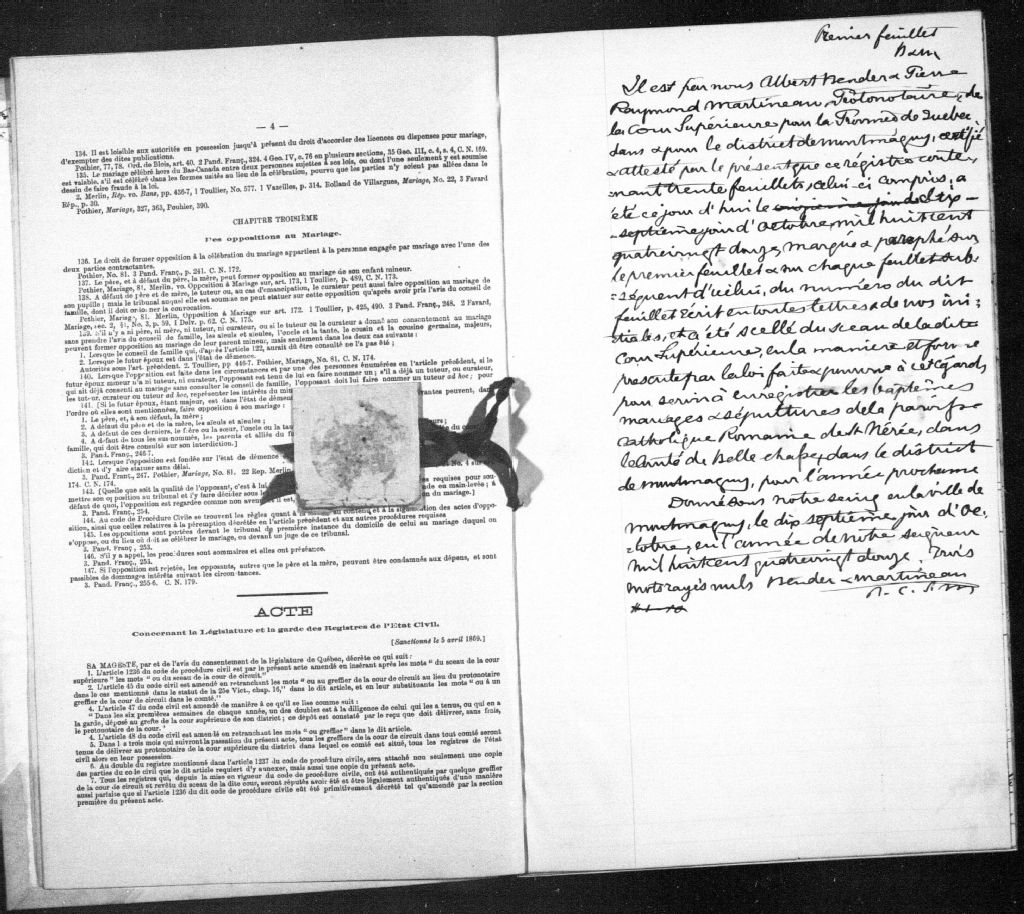 — 4 —
134. Il est loisible aux autorités en possession jusqu'à présent du droit d'accorder des licences ou dispenses pour mariage,
d'exempter des dites publications.
Pothier, 77, 78. Ord. de Blois, art. 40. 2 Pand. Franç., 324. 4 Geo. IV, c. 76 en plusieurs sections, 35 Geo. III, c. 4, s. 4, C. N. 169.
135. Le mariage célébré hors du Bas-Canada entre deux personnes sujettes à ses lois, ou dont l'une seulement y est soumise
est valable, s'il est célébré dans les formes usitées au lieu de la célébration, pourvu que les parties n'y soient pas allées dans le
dessein de faire fraude à la loi.
2. Merlin, Rép. vo. Bans, pp. 436-7, 1 Toullier, No. 577. 1 Vazeilles, p. 314. Rolland de Villargues, Mariage, No. 22, 3 Favard
Rép., p. 30.
Pothier, Mariage, 327, 363, Pouhier, 390.
CHAPITRE TROISIÈME
Des oppositions au Mariage.
136. Le droit de former opposition à la célébration du mariage appartient à la personne engagée par mariage avec l'une des
deux parties contractantes.
Pothier, No. 81. 3 Pand. Franç., p. 241. C. N. 172.
137. Le père, et à défaut du père, la mère, peut former opposition au mariage de son enfant mineur.
Pothier, Mariage, 81. Merlin, vo. Opposition à Mariage sur art. 173, 1 Toullier, p. 489, C. N. 173.
138. A défaut de père et de mère, le tuteur ou, au cas d'émancipation, le curateur peut aussi faire opposition au mariage de
son pupille; mais le tribunal auquel elle est soumise ne peut statuer sur cette opposition qu'après avoir pris l'avis du conseil de
famille, dont il doit ordonner la convocation.
Pothier, Mariage, 81. Merlin, Opposition à Mariage sur art. 172. 1 Toullier, p. 425, 490. 3 Pand. Franç., 248. 2 Favard,
Mariage, sec. 2, §1, No. 3, p. 59, 1 Delv. p. 62. C. N. 175.
139. S'il n'y a ni père, ni mère, ni tuteur, ni curateur, ou si le tuteur ou le curateur a donné son consentement au mariage
sans prendre l'avis du conseil de famille, les aïeuls et aïeules, l'oncle et la tante, le cousin et la cousine germains, majeurs,
peuvent former opposition au mariage de leur parent mineur, mais seulement dans les deux cas suivants :
1. Lorsque le conseil de famille qui, d'après l'article 122, aurait dû être consulté ne l'a pas été ;
2. Lorsque le futur époux est dans l'état de démence.
Autorités sous l'art. précédent. 2. Toullier, pp 446-7. Pothier, Mariage, No. 81. C. N. 174.
140. Lorsque l'opposition est faite dans les circonstances et par une des personnes énumérées en l'article précédent, si le
futur époux mineur n'a ni tuteur, ni curateur, l'opposant est tenu de lui en faire nommer un ; s'il a déjà un tuteur, ou curateur,
qui ait déjà consenti au mariage sans consulter le conseil de famille, l'opposant doit lui faire nommer un tuteur ad hoc ; pour
les tuteur, curateur ou tuteur ad hoc, représenter les intérêts du min
141. [Si le futur époux, étant majeur, est dans l'état de démen
l'ordre où elles sont mentionnées, faire opposition à son mariage :
1. Le père, et, à son défaut, la mère ;
2. A défaut du père et de la mère, les aïeuls et aïeules ;
3. A défaut de ces derniers, le frère ou la sœur, l'oncle ou la tan
4. A défaut de tous les sus nommés, les parents et alliés du f
famille, qui doit être consulté sur son interdiction.]
3. Pand. Franç., 246-7.
142. Lorsque l'opposition est fondée sur l'état de démence
diction et d'y aire statuer sans délai.
3. Pand. Franç., 247. Pothier, Mariage, No. 81. 22 Rep. Merlin
174. C. N. 174.
143. [Quelle que soit la qualité de l'opposant, c'est à lui
mettre son opposition au tribunal et d'y faire décider sous le
défaut de quoi, l'opposition est regardée comme non avenue
3. Pand. Franç., 254.
144. Au Code de Procédure Civile se trouvent les règles quant à la forme, au contenu, et à la signification des actes d'oppo-
sition, ainsi que celles relatives à la péremption décrétée en l'article précédent et aux autres procédures requises
145. Les oppositions sont portées devant le tribunal de première instance du domicile de celui au mariage duquel on
s'oppose, ou du lieu où doit se célébrer le mariage, ou devant un juge de ce tribunal.
3. Pand. Franç., 253.
146. S'il y a appel, les procédures sont sommaires et elles ont préséance.
3. Pand. Franç., 255.
147. Si l'opposition est rejetée, les opposants, autres que le père et la mère, peuvent être condamnés aux dépens, et sont
passibles de dommages intérêts suivant les circonstances.
3. Pand. Franç., 255-6. C. N. 179.
ACTE
Concernant la Législature et la garde des Registres de l'Etat Civil.
[Sanctionné le 5 avril 1869.]
SA MAGESTÉ, par et de l'avis du consentement de la législature de Québec, décrète ce qui suit :
1. L'article 1236 du code de procédure civil est par le présent acte amendé en insérant après les mots " du sceau de la cour
supérieure " les mots " ou du sceau de la cour de circuit."
2. L'article 45 du code civil est amendé en retranchant les mots " ou au greffier de la cour de circuit au lieu du protonotaire
dans le cas mentionné dans le statut de la 25e Vict., chap. 16," dans le dit article, et en leur substituant les mots " ou à un
greffier de la cour de circuit dans le comté."
4. L'article 47 du code civil est amendé de manière à ce qu'il se lise comme suit :
" Dans les six premières semaines de chaque année, un des doubles est à la diligence de celui qui les a tenus, ou qui en a
la garde, déposé au greffe de la cour supérieure de son district ; ce dépôt est constaté par le reçu que doit délivrer, sans frais,
le protonotaire de la cour."
4. L'article 48 du code civil est amendé en retranchant les mots " ou greffier" dans le dit article.
5. Dans les trois mois qui suivront la passation du présent acte, tous les greffiers de la cour de circuit dans tout comté seront
tenus de délivrer au protonotaire de la cour supérieure du district dans lequel ce comté est situé, tous les registres de l'état
civil alors en leur possession.
6. Au double du registre mentionné dans l'article 1237 du code de procédure civile, sera attaché non seulement une copie
des parties du code civil que le dit article requiert d'y annexer, mais aussi une copie du présent acte.
7. Tous les registres qui, depuis la mise en vigueur du code de procédure civile, ont été authentiqués par quelque greffier
de la cour de circuit et revêtu du sceau de la dite cour, seront réputés avoir été et être légalement authentiqués d'une manière
aussi parfaite que si l'article 1236 du dit code de procédure civile eût été primitivement décrété tel qu'amendé par la section
première du présent acte.
Premier feuillet
B & M
Il est par nous Albert Bender & Pierre
Raymond Martineau, Protonotaire, de
la Cour Supérieure pour la Province de Quebec,
dans & pour le district de Montmagny, certifié
& attesté par le présent que ce registre conte-
nant trente feuillets, celui-ci compris, a
été ce jour d'hui le cinquième jour de dix-
septième jour d'Octobre, mil huit cent
quatrevingt douze, marqué & paraphé sur
le premier feuillet & sur chaque feuillet sub-
séquent d'icelui, du numéro du dit
feuillet Ecrit en toutes lettres & de nos ini-
tiales, et a été scellé du sceau de la dite
Cour Supérieure, en la manière et forme
prescrite par la loi faite & pourvue à cet égard,
pour servir à enregistrer les baptêmes
mariages & sépultures de la paroisse
Catholique Romaine de St Nérée, dans
le Comté de Bellechasse, dans le district
de Montmagny, pour l'année prochaine
Donné sous notre seing en la ville de
Montmagny, le dix septième jour d'Oc-
tobre, en l'année de notre Seigneur
mil huit cent quatrevingt douze. Trois
mots rayés nuls Bender & Martineau
P. C. S. M